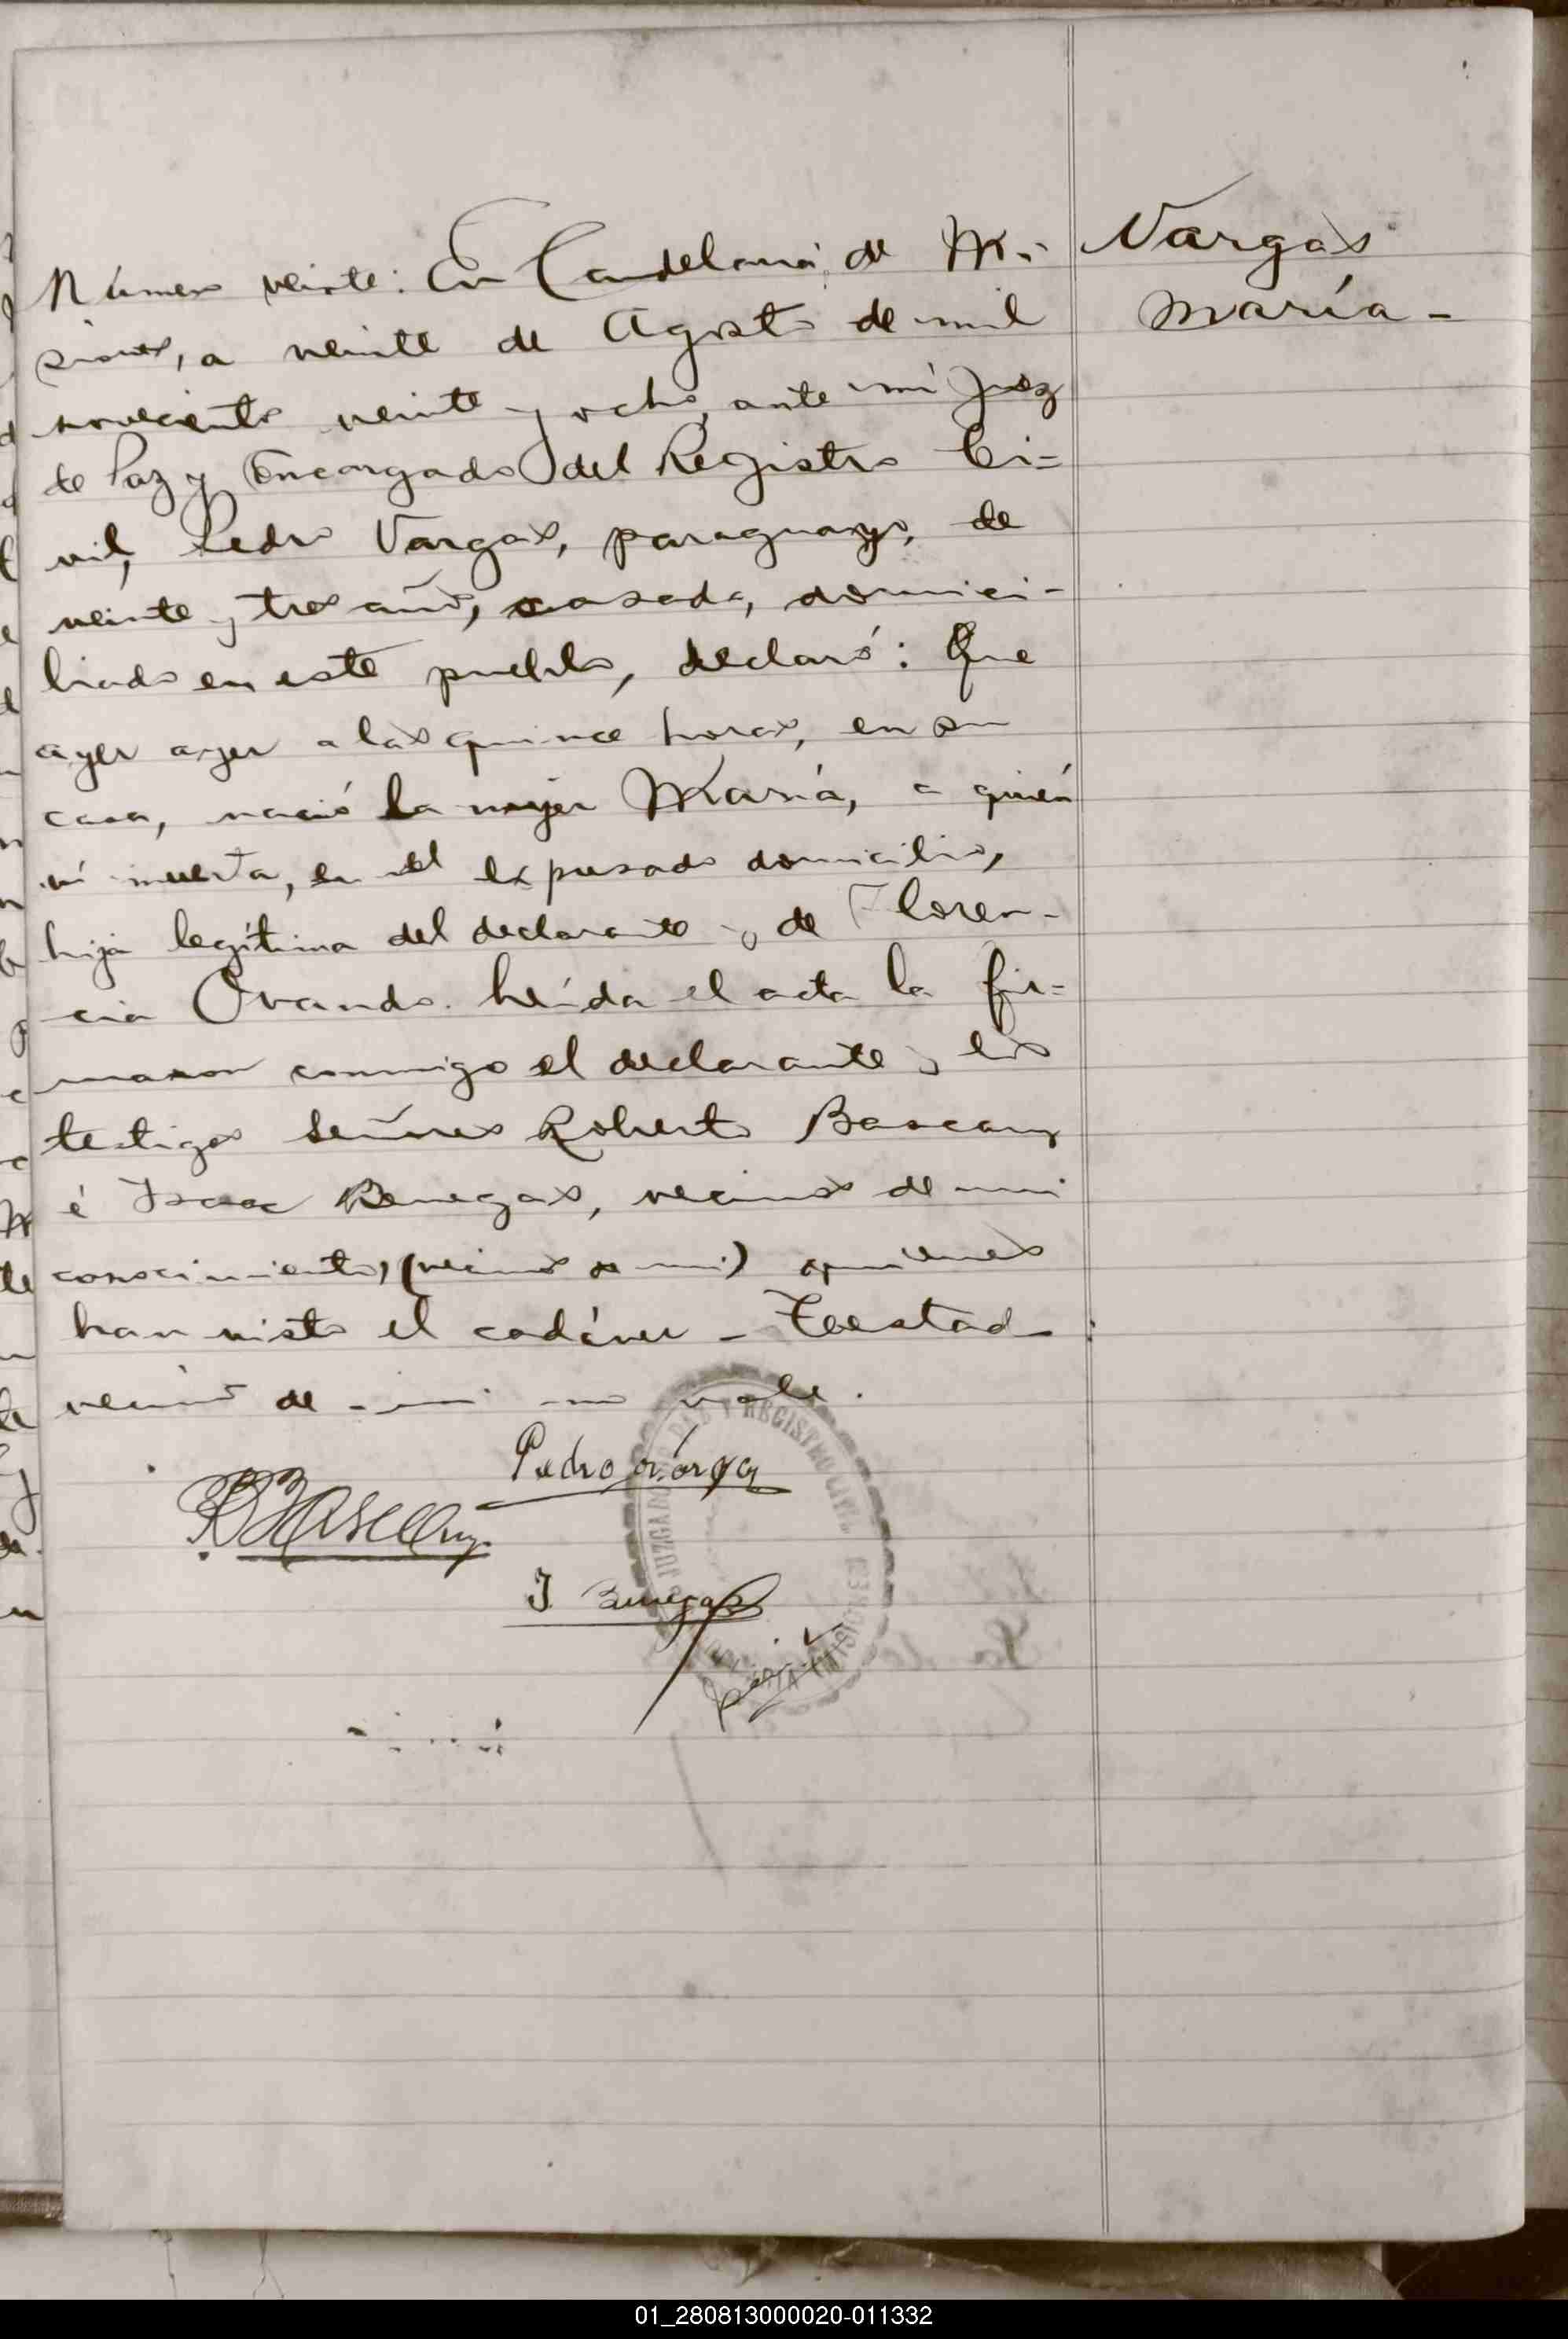 Vargas
María -
Número veinte: En Candelaria, de Mi-
siones, a veinte de Agosto de mil
novecientos veinte y ocho, ante mí Juez
de Paz y Encargado del Registro Ci=
vil, Pedro Vargas, paraguayo, de
veinte y tres años, casado, domici-
liado en este pueblo, declaró: Que
ayer ayer a las quince horas, en su
casa, nació la mujer María, a quién
ví muerta, en el expresado domicilio,
hija legítima del declarante y de Floren-
cia Ovando. Leída el acta la fir=
maron conmigo el declarante y los
testigos señores Roberto Bascary
é Isaac Benegas, vecinos de mi
conocimiento, (vecinos de mi) quienes
han visto el cadáver - Testado:
vecinos de mi no vale.
Pedro Vargas
RBascary
I Benegas
JUZGADO DE PAZ Y REGISTRO CIVIL
CANDELARIA MISIONES
01_280813000020-011332